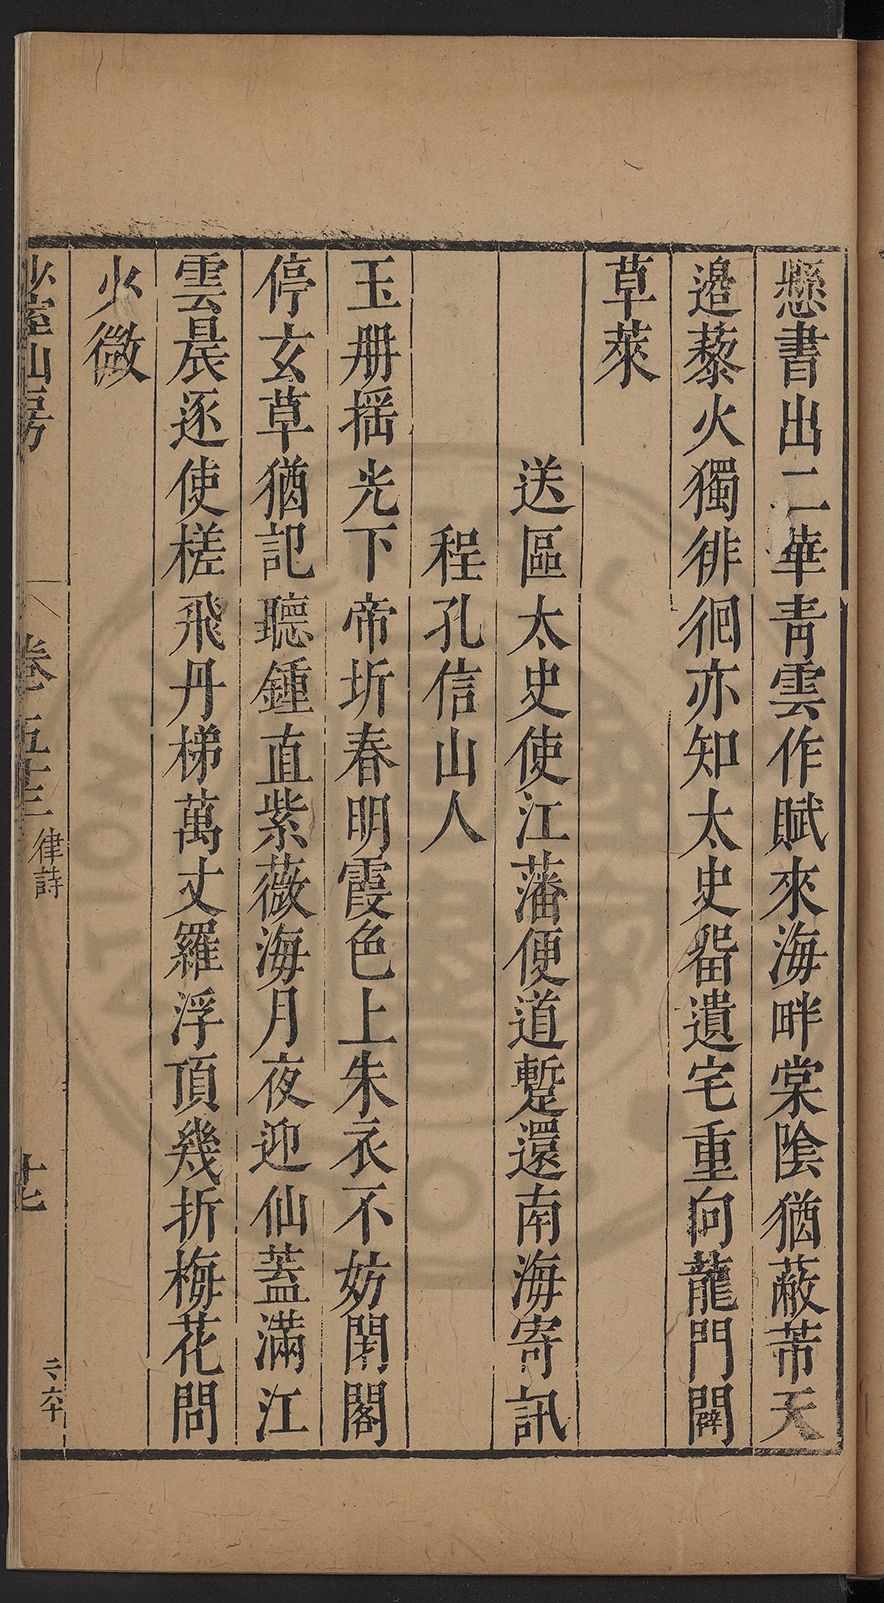 懸書出二華青雲作賦來海畔棠陰猶蔽芾天
邉藜火獨徘徊亦知太史畱遺宅重向龍門闢
草萊
送區太史使江藩便道蹔還南海寄訊
程孔信山人
玉册揺光下帝圻春明霞色上朱衣不妨閉閣
停玄草猶記聽鍾直紫薇海月夜迎仙蓋滿江
雲晨逐使槎飛丹梯萬丈羅浮頂幾折梅花問
火微
室山房
卷 五十三
律詩
廿七